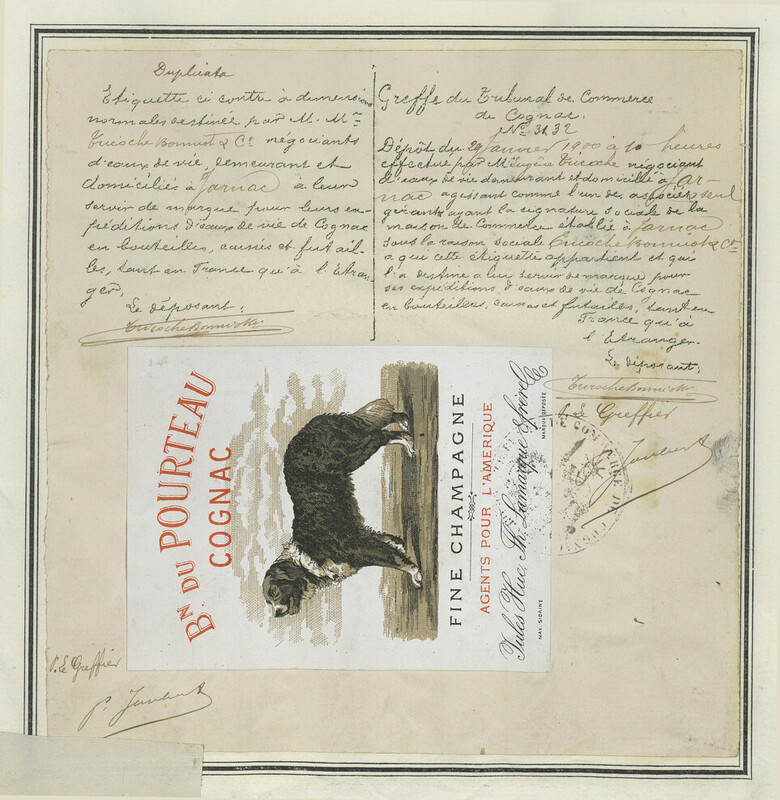 Duplicata
Etiquette ci contre à dimensions
normales destinée par M. Mrs
Tricoche Bonniot & Cie négociants
d'eaux de vie, demeurant et
domiciliés à Jarnac à leur
servir de marque pour leurs ex-
péditions d'eaux de vie de Cognac
en bouteilles, caisses et futail-
les, tant en France qu'à l'étran-
ger.
Le déposant:
Tricoche Bonniot & Cie
Greffe du Tribunal de Commerce
de Cognac.
No 3132
Dépôt du 29 Janvier 1900 à 10 heures
effectué par Mr Eugène Tricoche négociant
d'eaux de vie demeurant et domicilié à Jar-
nac agissant comme l'un des associés seul
gérant ayant la signature sociale de la
maison de Commerce établie à Jarnac
sous la raison sociale Tricoche Bonniot & Cie
a qui cette étiquette appartient et qui
l'a destine a lui servir de marque pour
ses expéditions d'eaux de vie de Cognac
en bouteilles, caisses et futailles, tant en
France qu'à
l'Etranger.
Le déposant:
Tricoche Bonniot & Cie
P. Le Greffier
P. Jaubert
BN. DU POURTEAU
COGNAC
FINE CHAMPAGNE
AGENTS POUR L'AMERIQUE
Jules Huc, Th. Lamarque & frère & Co
MAK. SIDAINE
MARQUE DÉPOSÉE
P. Le Greffier
P. Jaubert